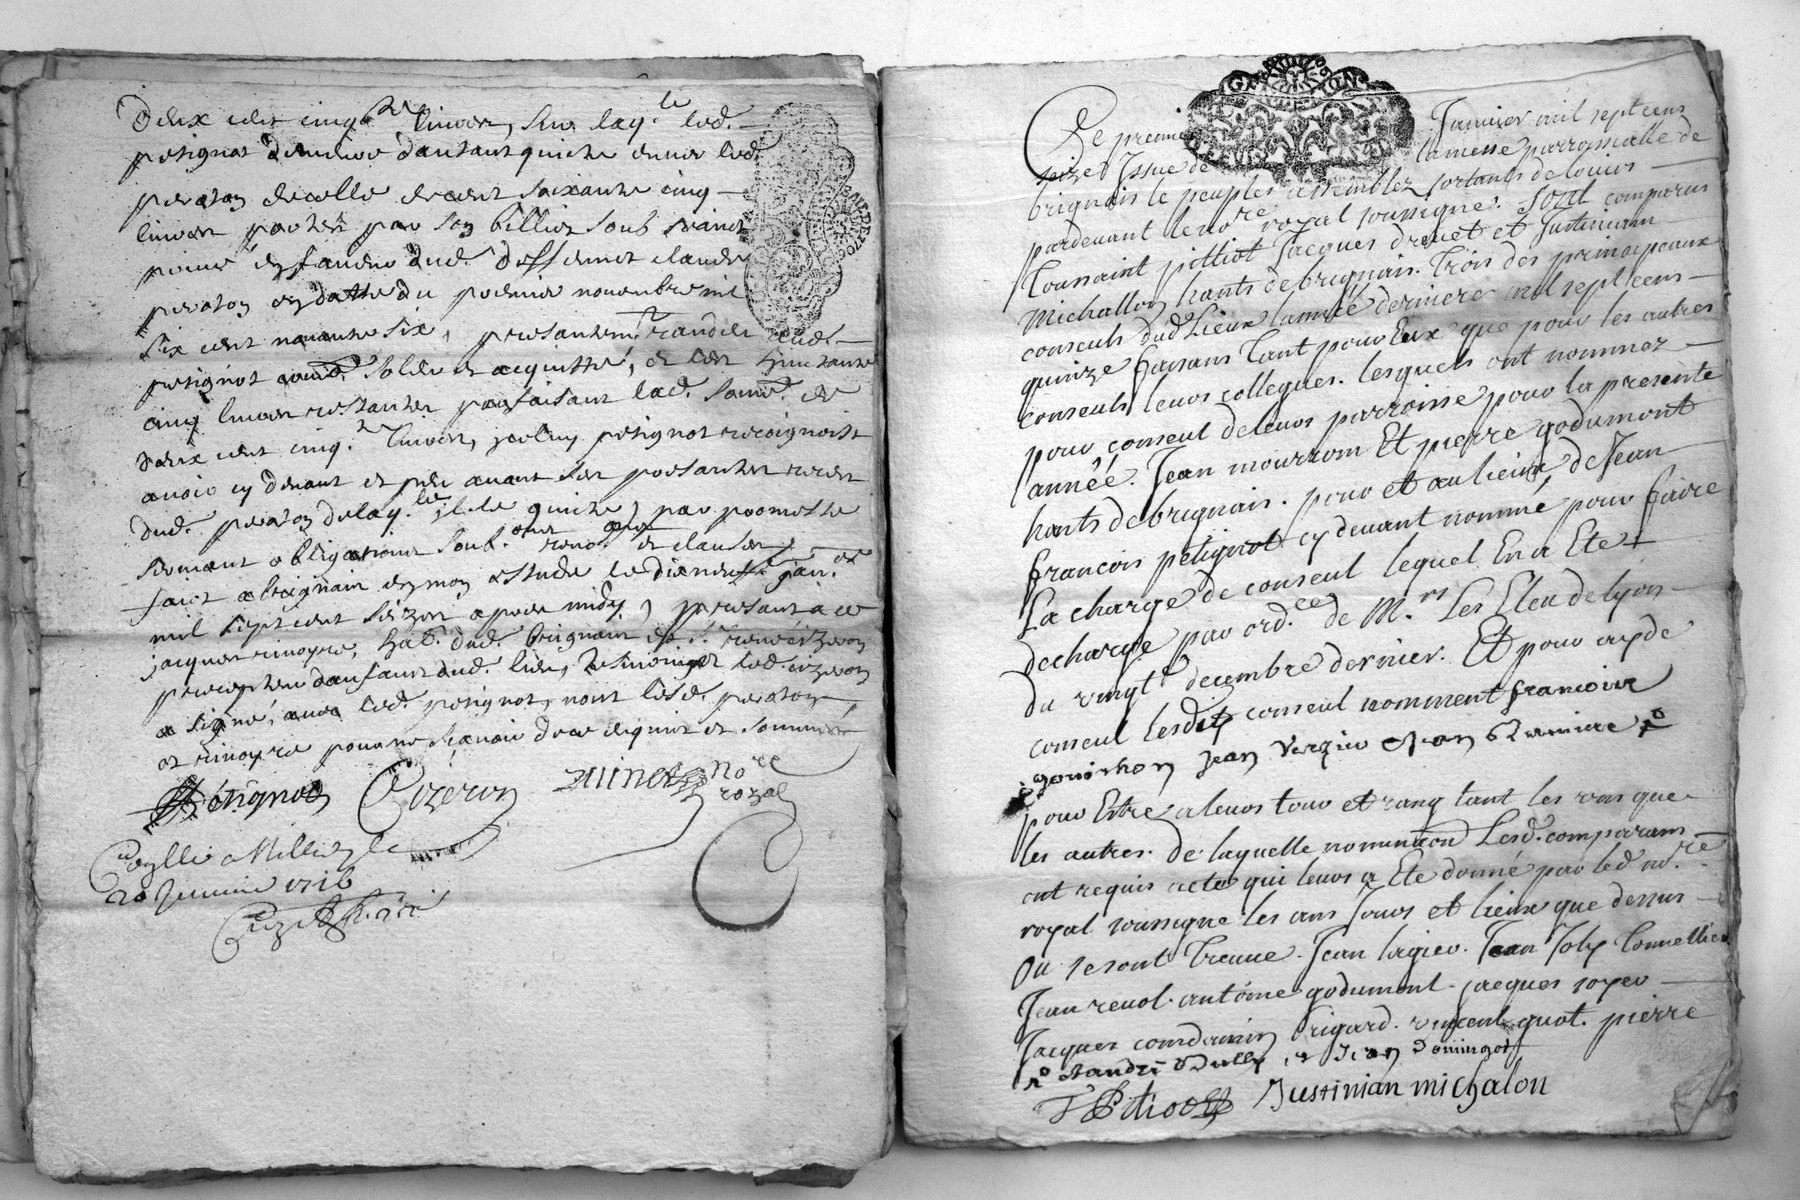 Deux cent cinq livres, sur laq.le led.
petignot demeure dautant quitte envers led.
peraton de celle de cent soixante cinq
livres portée par son billiet soub
en faveur dud. deffunct claude
peraton en datte du premier novembre mil
six cent nonante six, presantem.t randu aud.
petignot comme solu et acquitté, et les
cinq livres restantes parfaisant lad. somme de
deux cent cinq livres, icelluy petignot recognoist
avoir cy devant et peu avant ses presantes receu
dud. peraton de laq.le il le quitte, par promesse
serment obligations soub.ons renon.ons et clauses
faict a brignais en mon estude le janv.er
mil sept cent seize apres midy, presant a ce
jacques hab. dud. brignais et s.r cizeron
dud. lieu, tesmoings led. cizeron
a signé, avec led. petignot, nont lesd. peraton
et pour ne sçavoir de ce requis et sommé
Petignot Cizeron no.re
royal
Conllé a Millery le
20 Janvier 1716
GENE LYON
Le premier Janvier mil sept cens
seize Issue de la messe parrossialle de
brignais le peuples assemblez sortants de louir
pardevant le no.re royal soussigné. sont comparus
Toussaint pittiot Jacques drevet et Justinian
Michallon hants de brignais. Trois des principeaux
consculs dud Lieux lannée derniere mil sept cens
quinze faisans tant pour Eux que pour les autres
consculs leurs collegues. lesquels ont nommez
pour conseul de leurs parroisse pour la presente
année. Jean mourrom Et pierre godumont
hants de brignais. pour et au lieux de Jean
francois petignot cy devant nommé pour faire
La charge de conseul lequel En a Eté
decharge par ord.ce de M.rs Les Eleu de lyon
du vingt.e decembre dernier. Et pour ayde
conseul lesdits conseul nomment francoise
gonichon Jean Verzie
pour Estre a leurs tour et rang tant les uns que
les autres. de laquelle nomination Lesd. comparans
ont requis acte qui leurs a Eté donné par led no.re
royal soussigne les ans jours et lieux que dessus
Ou se sont Trouve. Jean lagier. Jean Joly Tonnellier
Jean revol. antoine godumont. jacques royer
Jacques comdamin rigard. vincent guot. pierre
et Jean Domingot
Justinian michalon